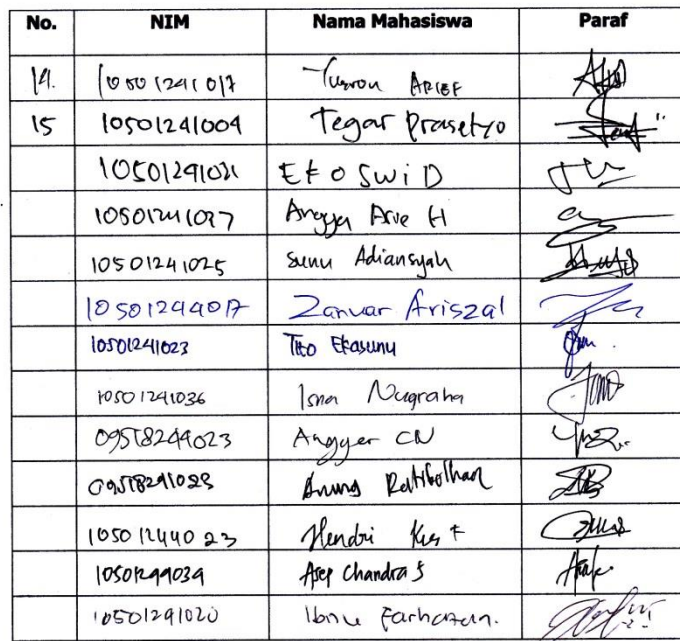 No. NIM Nama Mahasiswa Paraf
14. 10501241017 Yusron ARIEF
15 10501241004 Tegar Prasetyo
10501241021 EKO SWi D
10501241027 Angga Arie H
10501241025 Sunu Adiansyah
10501244017 Zanuar Ariszal
10501241023 Tito Ekasunu
10501241036 Isna Nugraha
09518244023 Angger CN
09518241023 Anung
10501244023 Hendri Kus F
10501244034 Asep Chandra S
10501241020 Ibnu Farhazan.